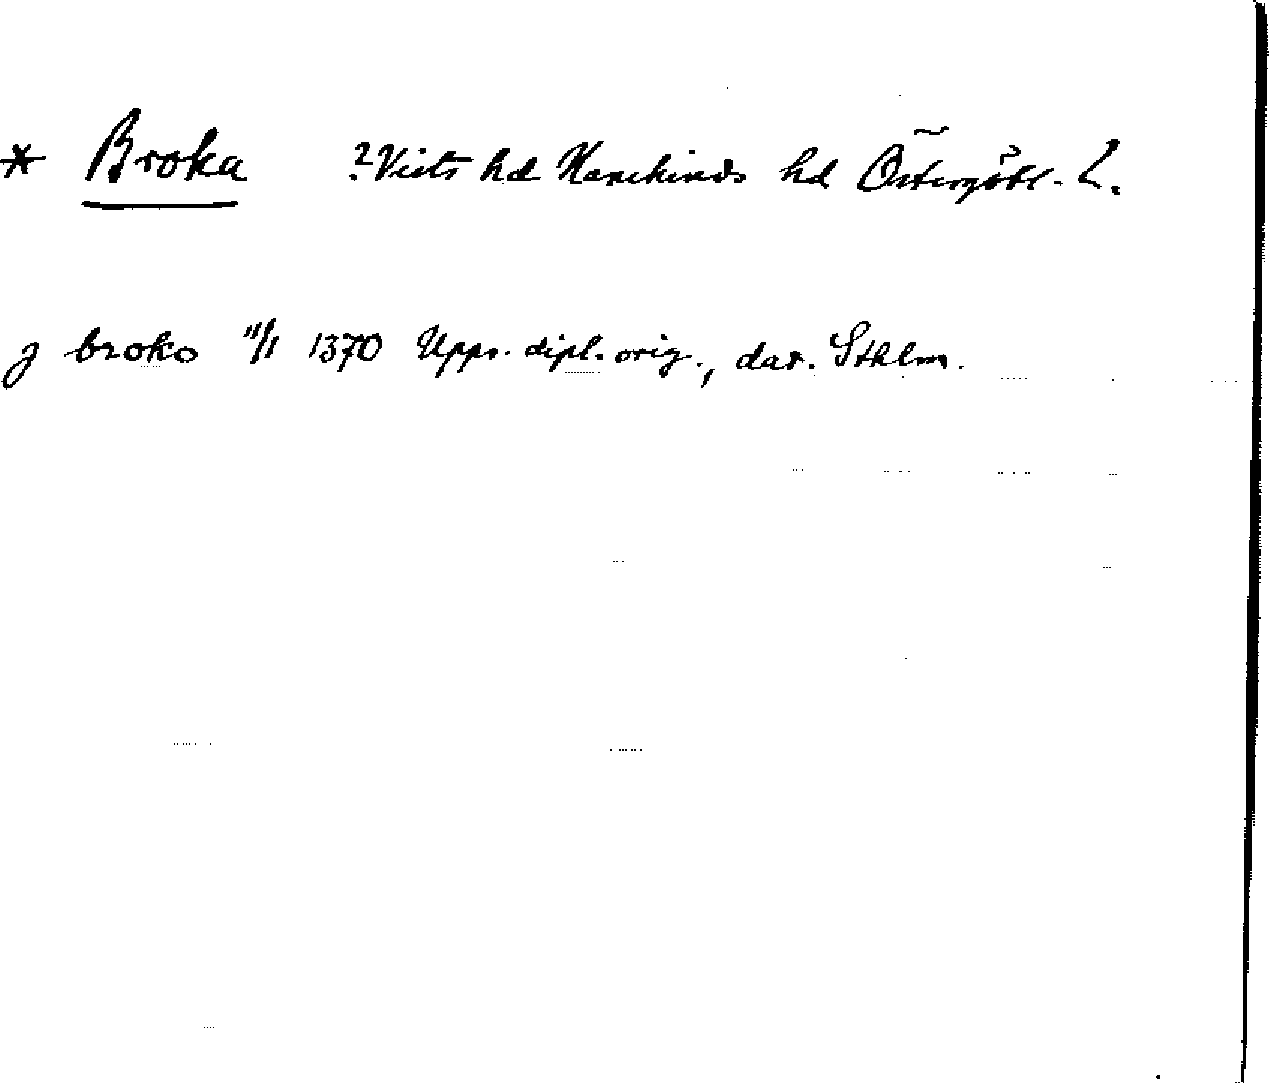 * Broka ? Vists hd Hanekinds hd Östergötl. L.
J broko 11/1 1370 Upps. dipl. orig., dat. Sthlm.